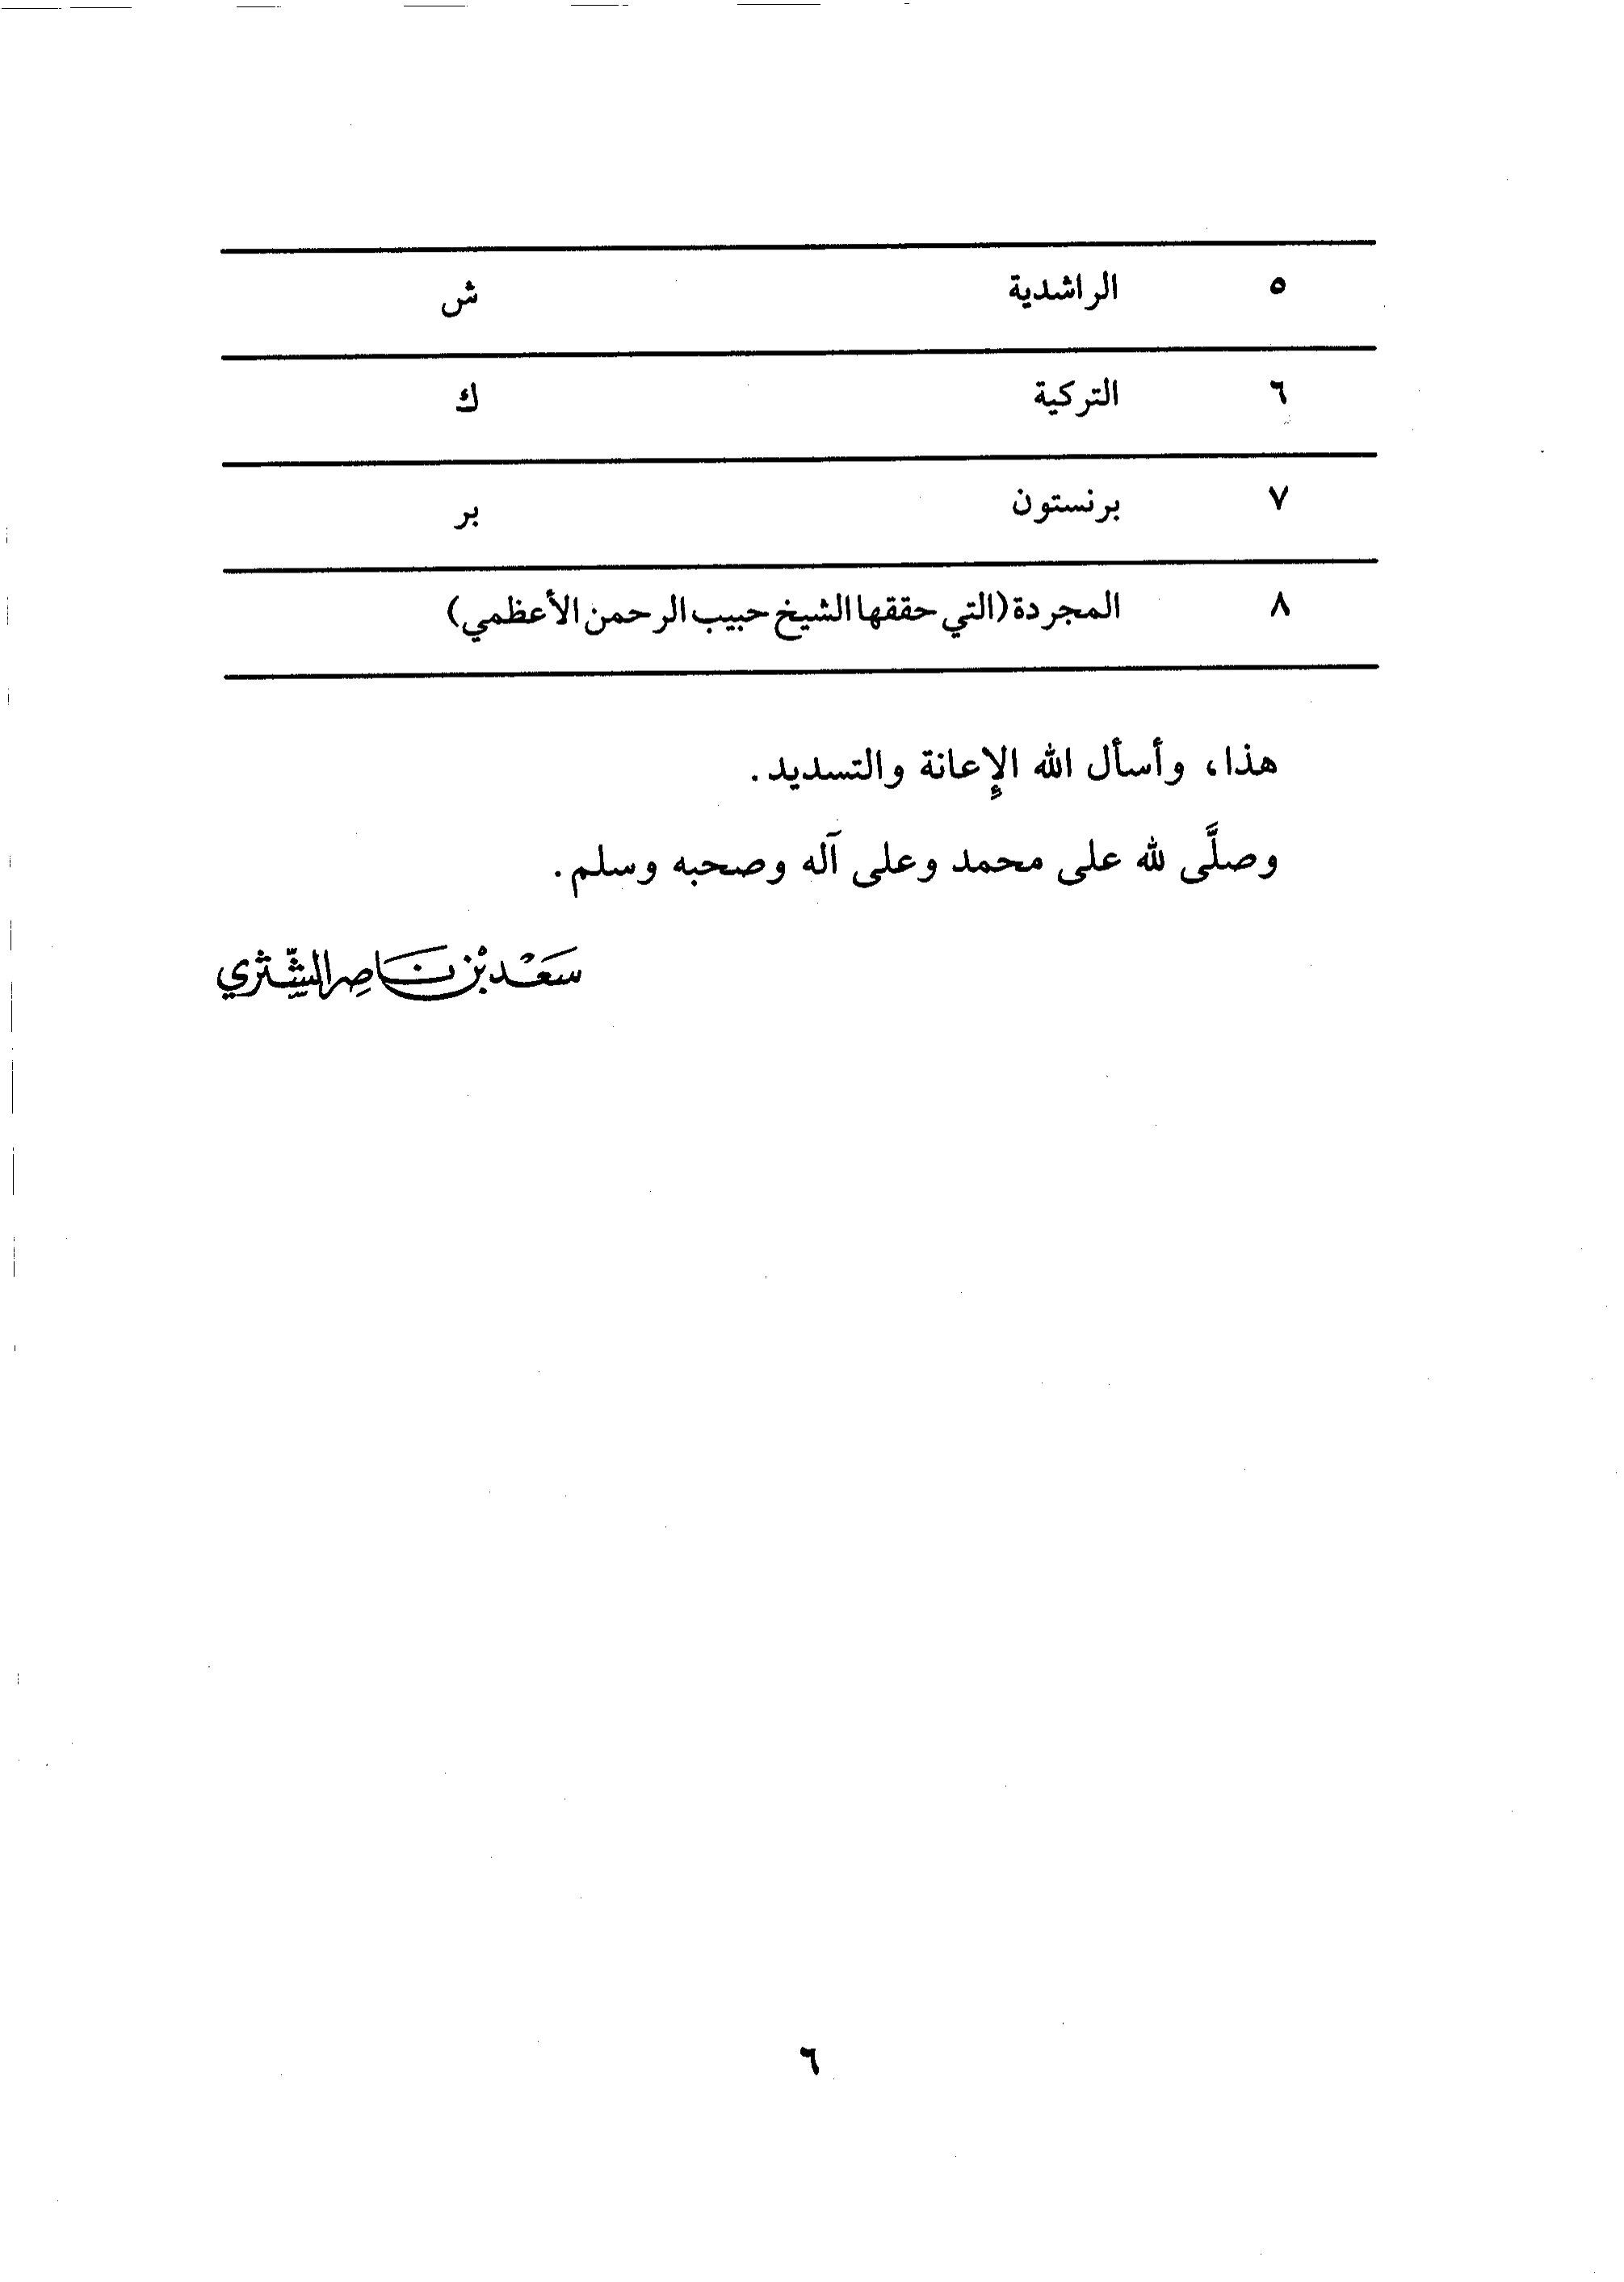 ٥ الراشدية ش
٦ التركية ك
٧ برنستون بر
٨ المجردة (التي حققها الشيخ حبيب الرحمن الأعظمي)
هذا، وأسأل الله الإعانة والتسديد.
وصلَّى لله على محمد وعلى آله وصحبه وسلم.
سَعَد بْن نَاصِر الشِّثري
٦